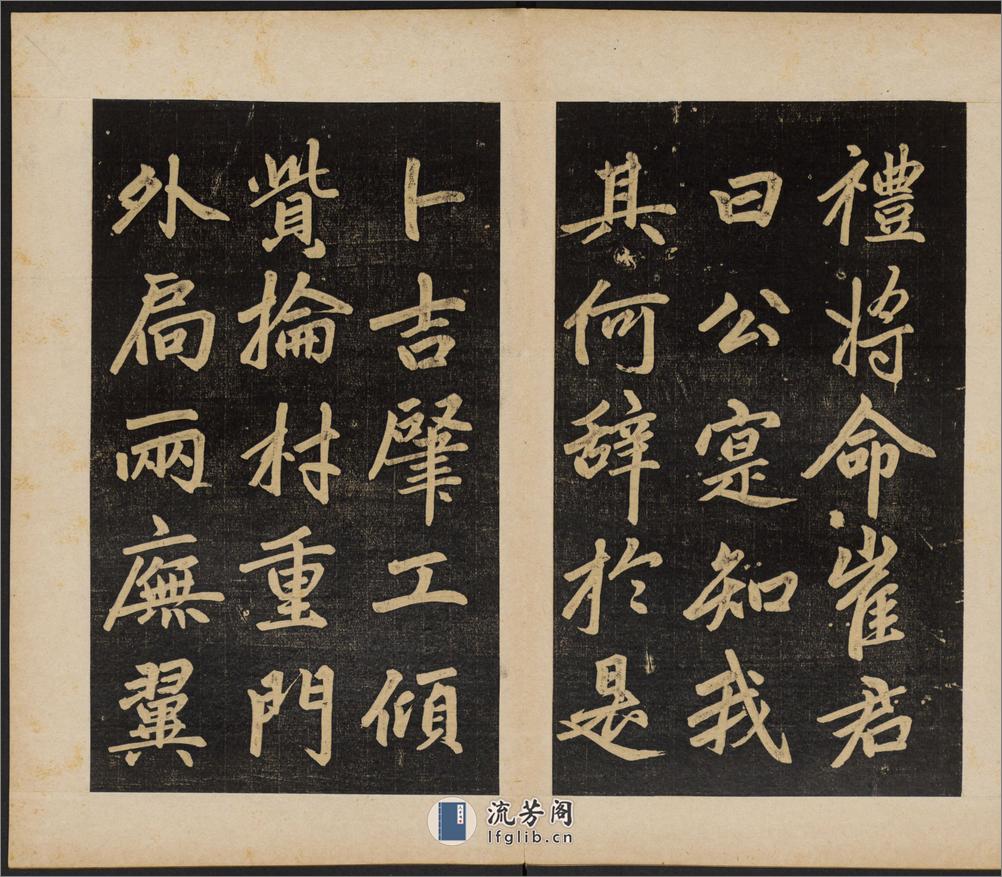 禮將命崔君
曰公寔知我
其何辭於是
卜吉肇工傾
貲掄材重門
外扃兩廡翼
流芳阁
lfglib.cn